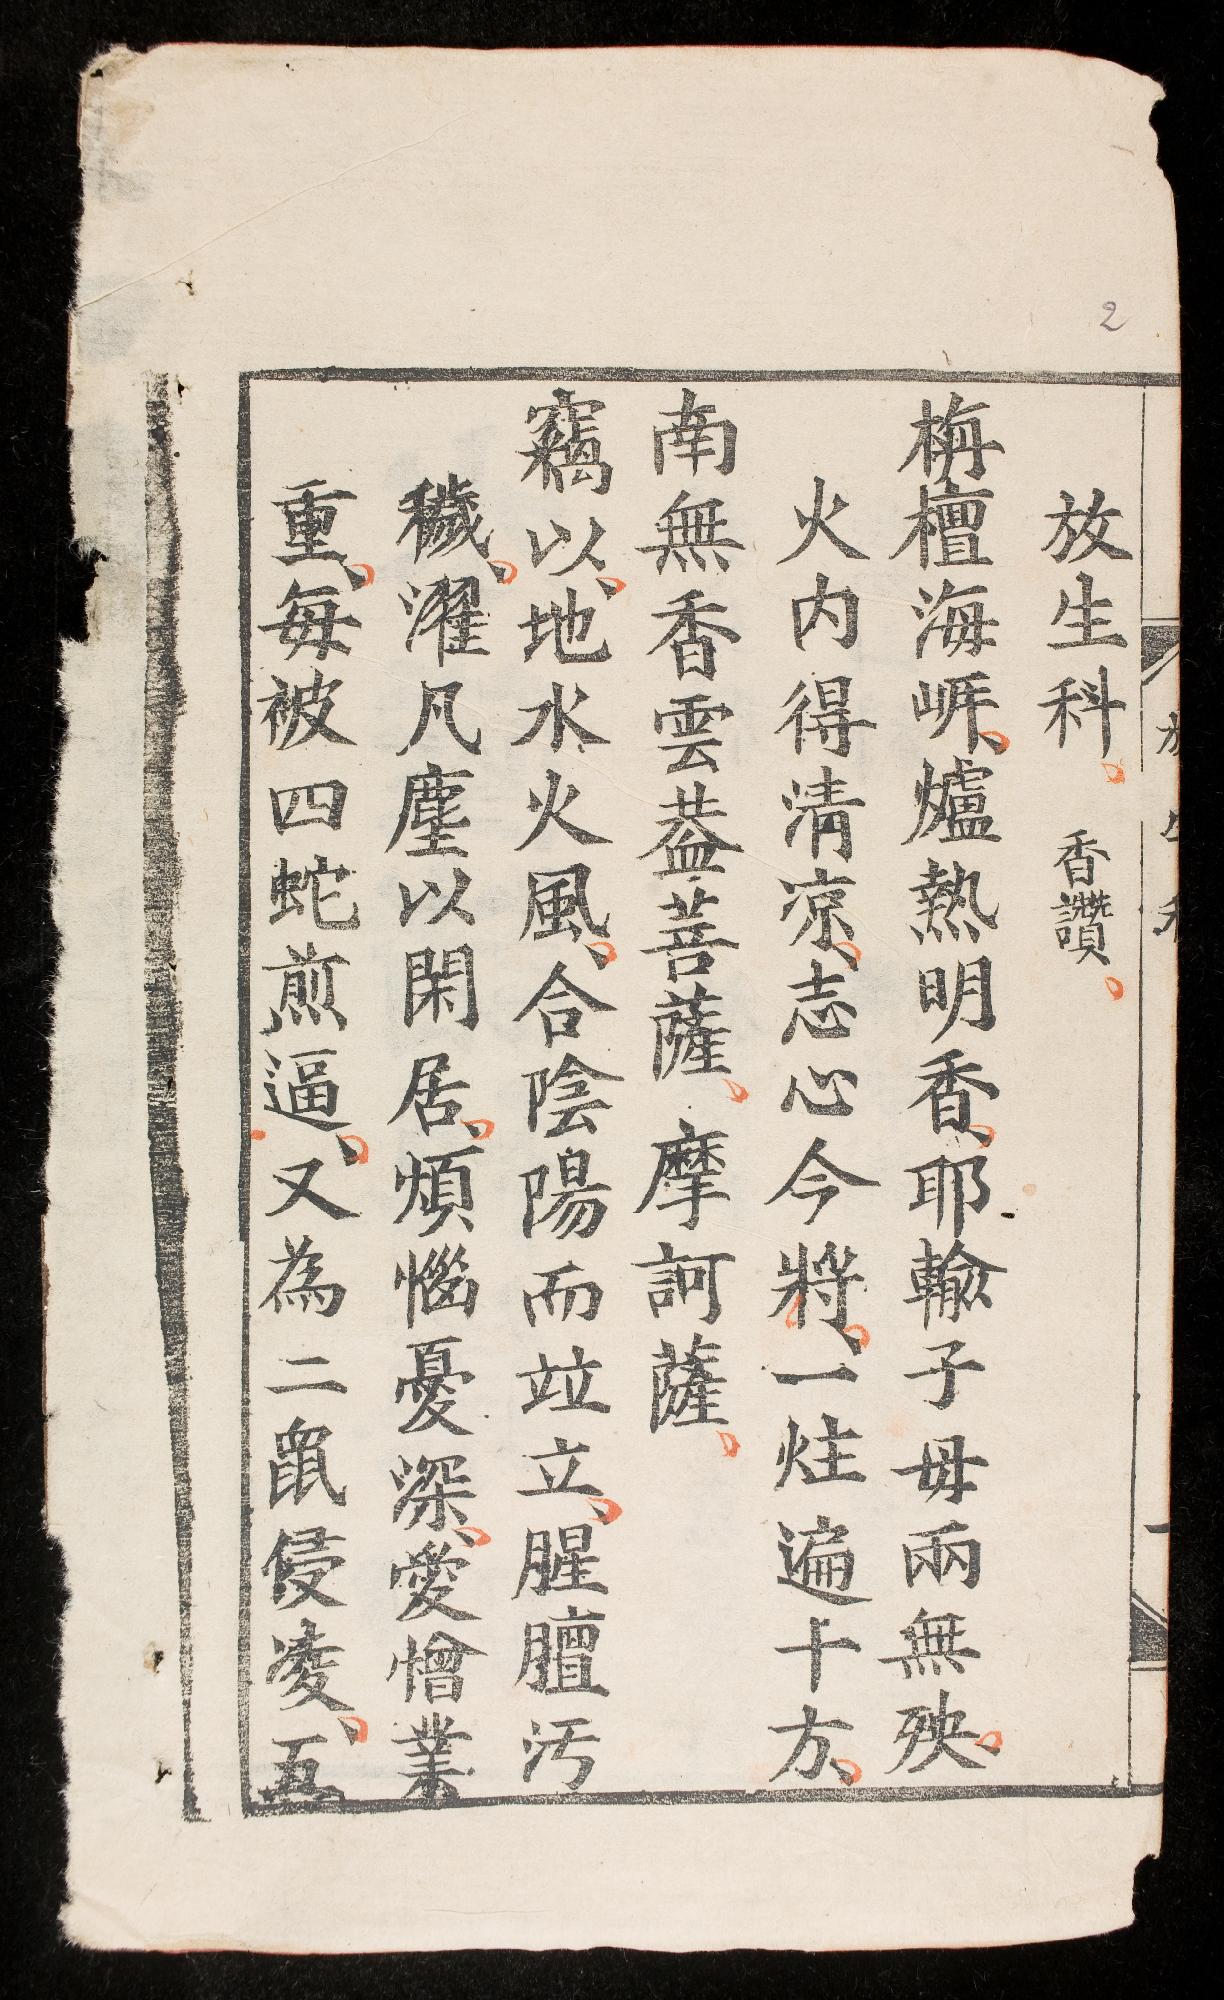 2
放生科。香讚。
栴檀海㟁、爐熱明香、耶輸子母兩無殃、
火内得清凉、志心今將、一炷遍十方、
南無香雲葢菩薩、摩訶薩、
竊以、地水火風、合陰陽而竝立、腥膻汚
穢、濯凡塵以閑居、煩惱憂深、愛憎業
重、每被四蛇煎逼、又為二鼠侵凌、五